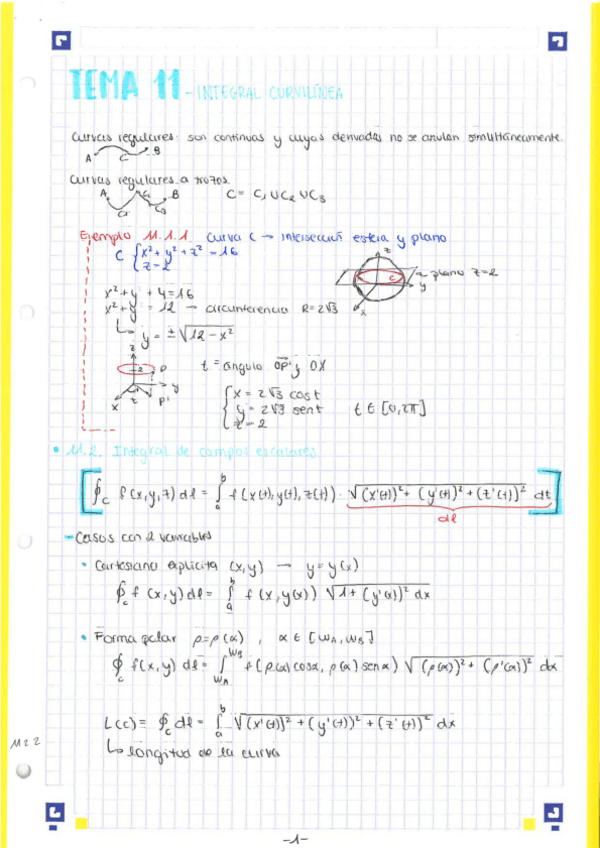 TEMA 11 - INTEGRAL CURVILÍNEA
Curvas regulares: son continuas y cuyas derivadas no se anulan simultáneamente.
A C B
Curvas regulares a trozos.
A C₁ C₂ C₃ B C = C₁ ∪ C₂ ∪ C₃
Ejemplo 11.1.1. Curva C → intersección esfera y plano
C { x² + y² + z² = 16
z = 2
z
C plano z=2
y
x
x² + y + 4 = 16
x² + y = 12 → circunferencia R = 2√3
y = ± √12 - x²
z
2 P
y
x P'
t = ángulo OP' y OX
{ x = 2√3 cos t
y = 2√3 sen t t ∈ [0, 2π]
z = 2
• 11.2. Integral de campos escalares
∮c f(x,y,z) dl = ∫ₐᵇ f(x(t), y(t), z(t)) · √(x'(t))² + (y'(t))² + (z'(t))² dt
dl
- Casos con 2 variables
• Cartesiana explícita (x,y) → y = y(x)
∮c f(x,y) dl = ∫ₐᵇ f(x, y(x)) √1 + (y'(x))² dx
• Forma polar ρ = ρ(α), α ∈ [WA, WB]
∮c f(x,y) dl = ∫ WA WB f(ρ(α) cosα, ρ(α) senα) √(ρ(α))² + (ρ'(α))² dα
L(c) = ∮c dl = ∫ₐᵇ √(x'(t)]² + (y'(t))² + (z'(t))² dx
↳ longitud de la curva
-1-